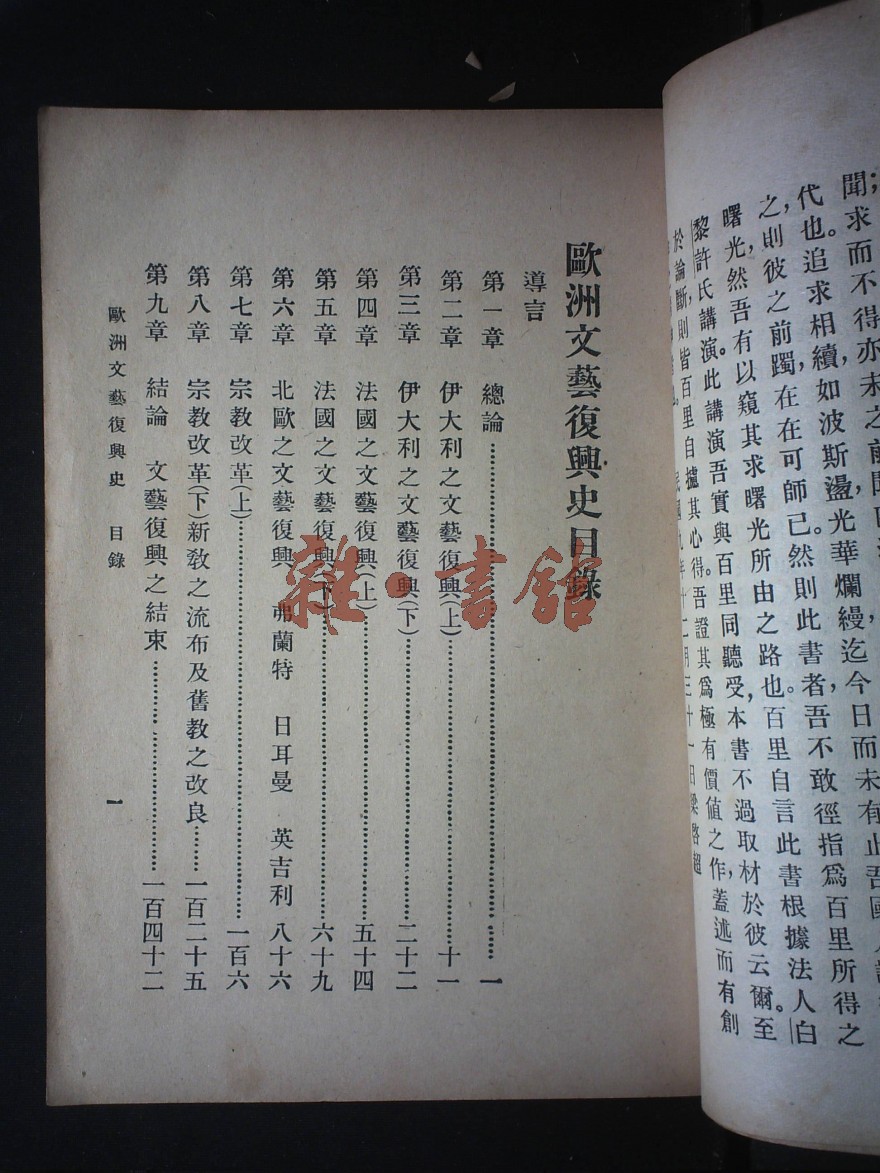 聞求而不得亦未之前聞
代也。追求相續，如波斯盪光華爛縵，迄今日而未有止。吾國人
之，則彼之前躅，在在可師已。然則此書者，吾不敢徑指為百里所得之
曙光，然吾有以窺其求曙光所由之路也。百里自言此書根據法人白
黎許氏講演。此講演吾實與百里同聽受，本書不過取材於彼云爾。至
於論斷，則皆百里自攄其心得。吾證其爲極有價値之作，蓋述而有創
民國九年十二月三十一日梁啓超
歐洲文藝復興史目錄
導言
第一章 總論……一
第二章 伊大利之文藝復興(上)……十一
第三章 伊大利之文藝復興(下)……二十二
第四章 法國之文藝復興(上)……五十四
第五章 法國之文藝復興(下)……六十九
第六章 北歐之文藝復興 弗蘭特 日耳曼 英吉利 八十六
第七章 宗教改革(上)……一百六
第八章 宗教改革(下)新敎之流布及舊教之改良……一百二十五
第九章 結論 文藝復興之結束……一百四十二
歐洲文藝復興史 目錄
一
雜·書館